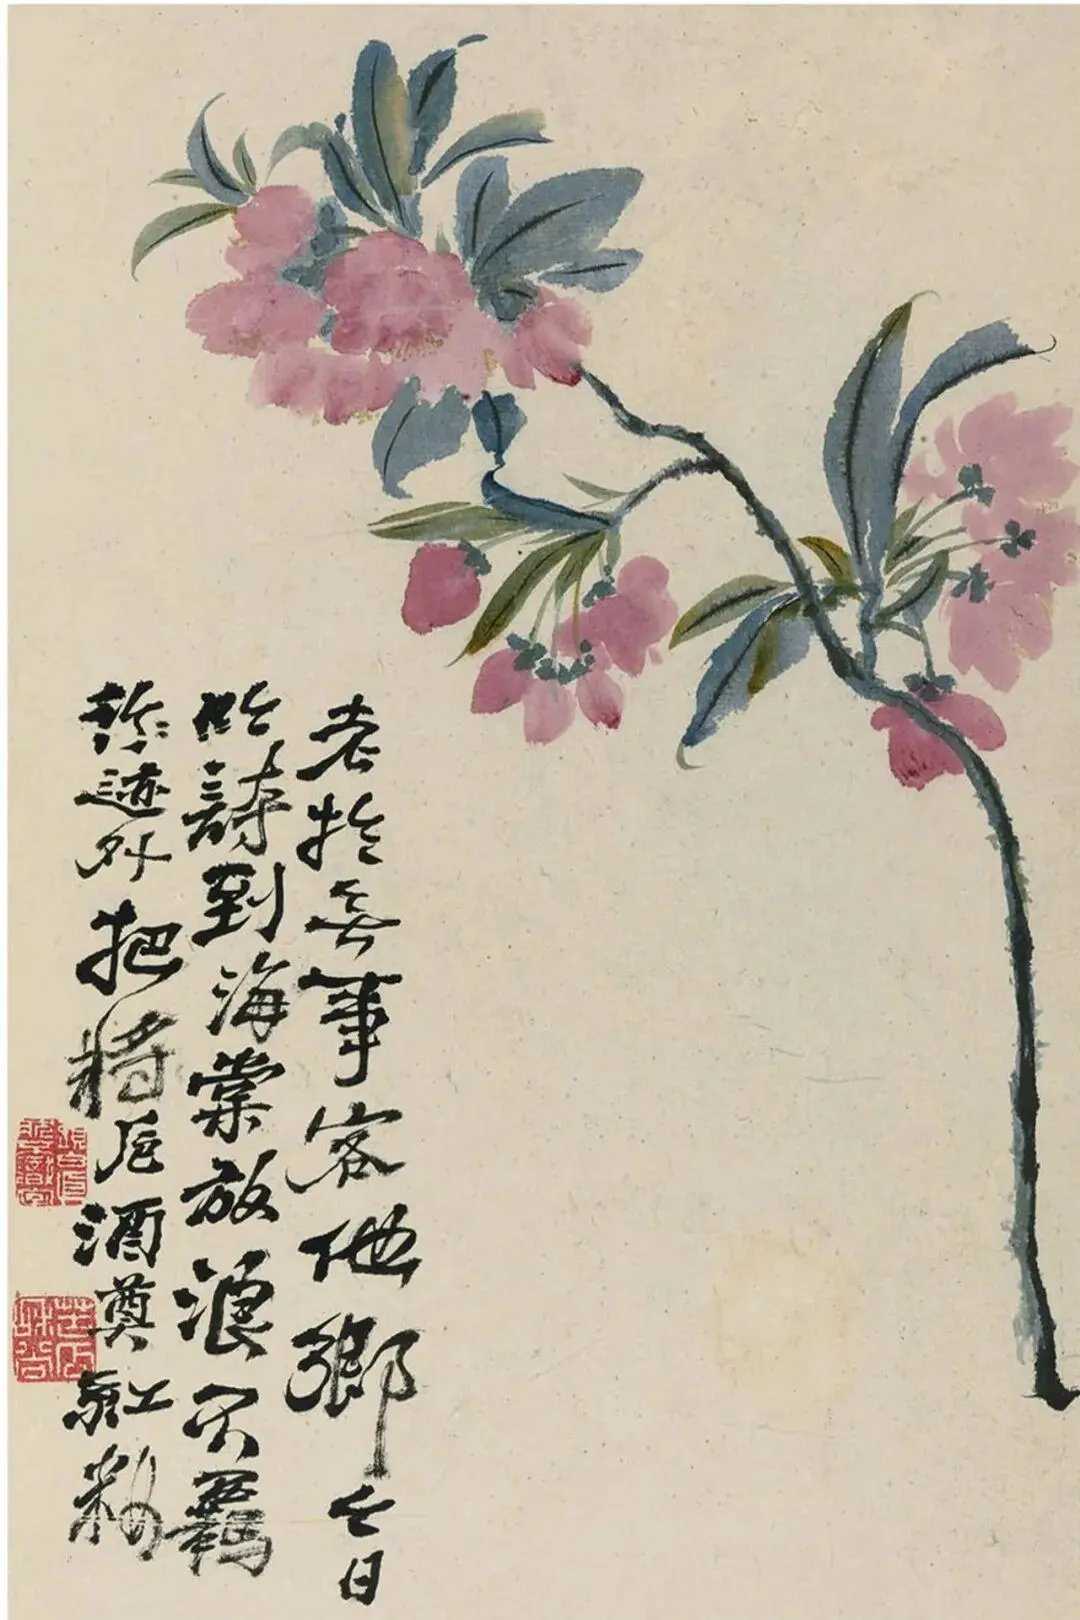 老扵無事客他鄉今日
吟詩到海棠放浪不羈
形迹外把將卮酒奠紅粧